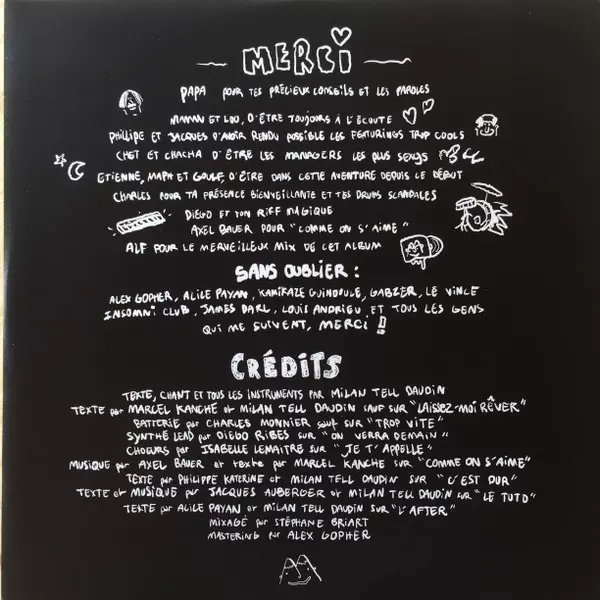 MERCI
PAPA POUR TES PRÉCIEUX CONSEILS ET LES PAROLES
MAMAN ET LOO, D'ÊTRE TOUJOURS À L'ÉCOUTE
PHILLIPE ET JACQUES D'AVOIR RENDU POSSIBLE LES FEATURINGS TROP COOLS
CHET ET CHACHA D'ÊTRE LES MANAGERS LES PLUS SEXYS
ETIENNE, MAPH ET GOULF, D'ÊTRE DANS CETTE AVENTURE DEPUIS LE DÉBUT
CHARLES POUR TA PRÉSENCE BIENVEILLANTE ET TES DRUMS SCANDALES
DIEGO ET TON RIFF MAGIQUE
AXEL BAUER POUR "COMME ON S'AIME"
ALF POUR LE MERVEILLEUX MIX DE CET ALBUM
SANS OUBLIER :
ALEX GOPHER, ALICE PAYAN, KAMIKAZE GUINDOULE, GABZER, LE VINCE
INSOMNI CLUB, JAMES DARL, LOUIS ANDRIEU ET TOUS LES GENS
QUI ME SUIVENT, MERCI !
CRÉDITS
TEXTE, CHANT ET TOUS LES INSTRUMENTS PAR MILAN TELL DAUDIN
TEXTE par MARCEL KANCHE et MILAN TELL DAUDIN SAUF SUR "LAISSEZ-MOI RÊVER"
BATTERIE par CHARLES MONNIER sauf SUR "TROP VITE"
SYNTHÉ LEAD par DIEGO RIBES SUR "ON VERRA DEMAIN"
CHOEURS par ISABELLE LEMAITRE SUR "JE T'APPELLE"
MUSIQUE par AXEL BAUER et texte par MARCEL KANCHE SUR "COMME ON S'AIME"
TEXTE par PHILIPPE KATERINE et MILAN TELL DAUDIN SUR "C'EST DUR"
TEXTE et MUSIQUE par JACQUES AUBERGER et MILAN TELL DAUDIN SUR "LE TUTO"
TEXTE par ALICE PAYAN et MILAN TELL DAUDIN SUR "L'AFTER"
MIXAGE par STÉPHANE BRIART
MASTERING par ALEX GOPHER